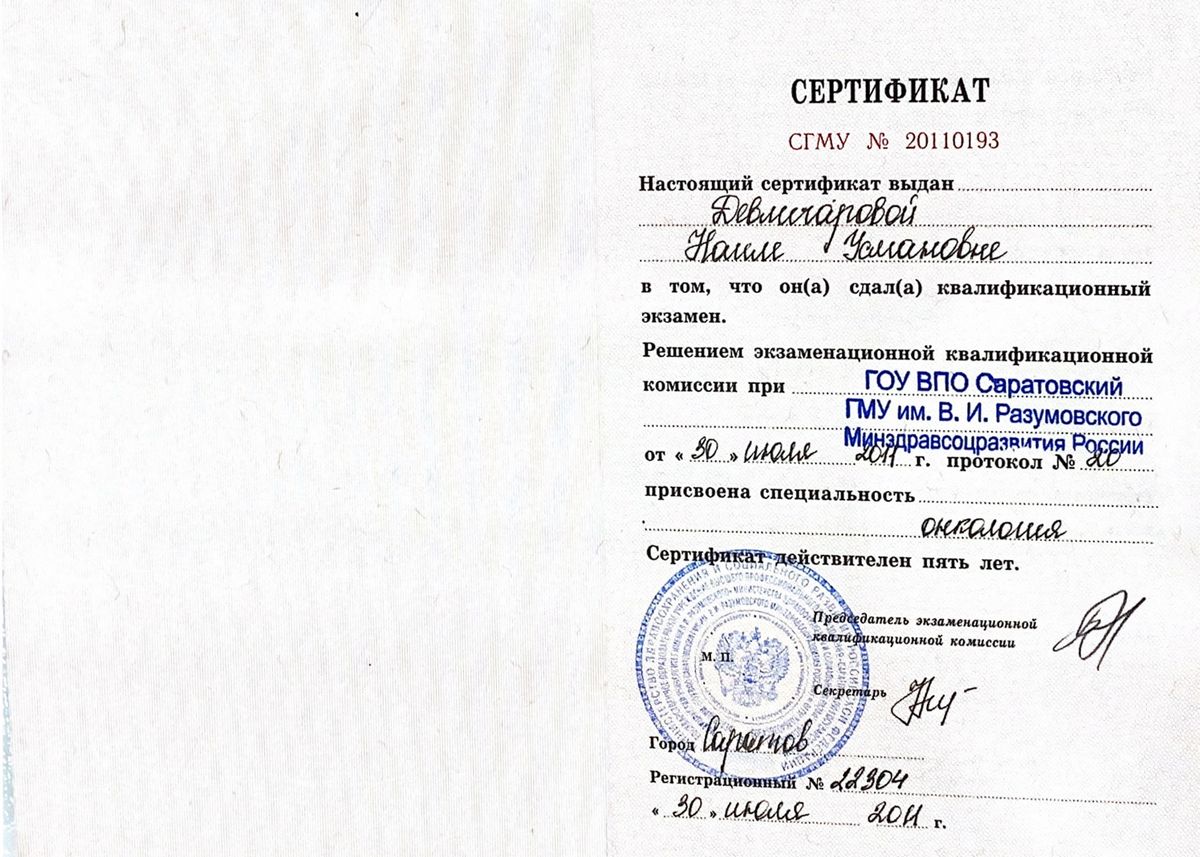 СЕРТИФИКАТ
СГМУ № 20110193
Настоящий сертификат выдан
Девличаровой
Наиле Усмановне
в том, что он(а) сдал(а) квалификационный
экзамен.
Решением экзаменационной квалификационной
комиссии при ГОУ ВПО Саратовский
ГМУ им. В. И. Разумовского
Минздравсоцразвития России
от « 30 » июля 2011 г. протокол № 20
присвоена специальность
онкология
Сертификат действителен пять лет.
Председатель экзаменационной
квалификационной комиссии
М. П.
Секретарь
Город Саратов
Регистрационный № 22304
« 30 » июля 2011 г.